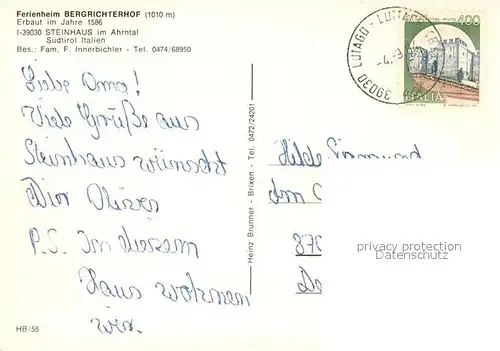 Ferienheim BERGRICHTERHOF (1010 m)
Erbaut im Jahre 1586
I-39030 STEINHAUS im Ahrntal
Südtirol Italien
Bes.: Fam. F. Innerbichler - Tel. 0474/68950
Liebe Oma!
Viele Grüße aus
Steinhaus wünscht
Dir Oliver
P.S. In diesem
Haus wohnen
wir.
HB/55
Heinz Brunner - Brixen - Tel. 0472/24201
39030 LUTAGO - LUTAGO
400
ITALIA
Hilde
Am
870
privacy protection
watermark
De